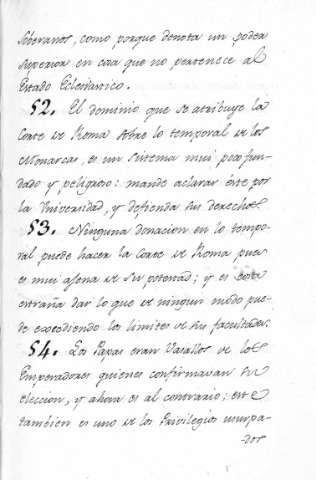 Soberanos, como porque denota un poder
superior en cosa que no pertenece al
Estado Eclesiastico.
52. El dominio que se atribuye la
Corte de Roma sobre lo temporal de los
Monarcas, es un sistema mui poco fun-
dado y peligroso: mande aclarar éste por
la Universidad, y defienda su derecho.
53. Ninguna donacion en lo tempo-
ral puede hacer la Corte de Roma pues
es mui agena de su potestad; y es cosa
extraña dar lo que de ningun modo pue-
de excediendo los limites de sus facultades.
54. Los Papas eran Vasallos de los
Emperadores quienes confirmavan su
eleccion, y ahora es al contrario; este
tambien es uno de los Privilegios usurpa-
dos